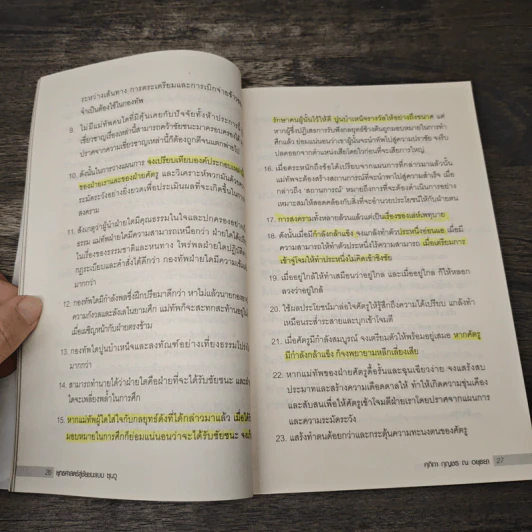 ระหว่างเส้นทาง การตระเตรียมและการเบิกจ่ายสิ่ง
จำเป็นต้องใช้ในกองทัพ
9. ไม่มีแม่ทัพคนใดที่มิคุ้นเคยกับปัจจัยทั้งห้าประการนี้
เชี่ยวชาญเรื่องเหล่านี้สามารถคว้าชัยชนะมาครอบครองได้
ปราศจากความเชี่ยวชาญเหล่านี้ก็ต้องถูกตีจนแตกพ่ายไป
10. ดังนั้นในการวางแผนการ จงเปรียบเทียบองค์ประกอบเหล่านี้
ของฝ่ายเราและของฝ่ายศัตรู และวิเคราะห์พวกมันด้วยความ
ระมัดระวังอย่างยิ่งยวดเพื่อประเมินผลที่จะเกิดขึ้นในการ
สงคราม
11. สังเกตดูว่าผู้นำฝ่ายใดมีคุณธรรมในใจและปกครองอย่าง
ธรรม แม่ทัพฝ่ายใดมีความสามารถเหนือกว่า ฝ่ายใดได้เปรียบ
ในเรื่องของธรรมชาติและหนทาง ไพร่พลฝ่ายใดปฏิบัติตาม
กฎระเบียบและคำสั่งได้ดีกว่า กองทัพฝ่ายใดมีความเข้มแข็ง
มากกว่า
12. กองทัพใดมีกำลังพลซึ่งฝึกปรือมาดีกว่า หาไม่แล้วนายกอง
ความกังวลและลังเลในยามศึก แม่ทัพก็จะสะทกสะท้านอยู่ใน
เมื่อเผชิญหน้ากับฝ่ายตรงข้าม
13. กองทัพใดปูนบำเหน็จและลงทัณฑ์อย่างเที่ยงธรรมโปร่งใส
มากกว่า
14. สามารถทำนายได้ว่าฝ่ายใดคือฝ่ายที่จะได้รับชัยชนะ และฝ่าย
ใดจะเพลี่ยงพล้ำในการศึก
15. หากแม่ทัพผู้ใดใส่ใจกับกลยุทธ์ดังที่ได้กล่าวมาแล้ว เมื่อได้รับ
มอบหมายในการศึกก็ย่อมแน่นอนว่าจะได้รับชัยชนะ จง
26 ยุทธศาสตร์สู่ชัยชนะแบบ ซุนวู
รักษาคนผู้นั้นไว้ให้ดี ปูนบำเหน็จรางวัลให้อย่างถึงขนาด แต่
หากผู้ซึ่งปฏิเสธการรับฟังกลยุทธ์ข้างต้นถูกมอบหมายในการทำ
ศึก ย่อมแน่นอนว่าเขาผู้นั้นจะนำทัพไปสู่ความปราชัย จงรีบ
ปลดออกจากตำแหน่งเสียโดยไวก่อนที่จะเสียการใหญ่
16. เมื่อตระหนักถึงข้อได้เปรียบจากแผนการที่กล่าวมาแล้วนั้น
แม่ทัพจะต้องสร้างสถานการณ์ที่จะนำพาไปสู่ความสำเร็จ เมื่อ
กล่าวถึง 'สถานการณ์' หมายถึงการที่จะต้องดำเนินการอย่าง
เหมาะสมให้สอดคล้องกับสิ่งที่จะอำนวยประโยชน์ให้กับฝ่ายตน
17. การสงครามทั้งหลายล้วนแล้วแต่เป็นเรื่องของเล่ห์เพทุบาย
18. ดังนั้นเมื่อมีกำลังกล้าแข็ง จงแสร้งทำประหนึ่งอ่อนแอ เมื่อมี
ความสามารถให้ทำตัวประหนึ่งไร้ความสามารถ เมื่อเตรียมการ
เข้าจู่โจมให้ทำประหนึ่งไม่คิดเข้าชิงชัย
19. เมื่ออยู่ใกล้ให้ทำเสมือนว่าอยู่ไกล และเมื่ออยู่ไกล ก็ให้หลอก
ลวงว่าอยู่ใกล้
20. ใช้ผลประโยชน์มาล่อใจศัตรูให้รู้สึกถึงความได้เปรียบ แกล้งทำ
เหมือนระส่ำระสายและบุกเข้าโจมตี
21. เมื่อศัตรูมีกำลังสมบูรณ์ จงเตรียมตัวให้พร้อมอยู่เสมอ หากศัตรู
มีกำลังกล้าแข็ง ก็จงพยายามหลีกเลี่ยงเสีย
22. หากแม่ทัพของฝ่ายศัตรูดื้อรั้นและขุ่นเฉียวง่าย จงแสร้งสบ
ประมาทและสร้างความเดือดดาลให้ ทำให้เกิดความขุ่นเคือง
และสับสนเพื่อให้ศัตรูเข้าโจมตีฝ่ายเราโดยปราศจากแผนการ
และความระมัดระวัง
23. แสร้งทำตนด้อยกว่าและกระตุ้นความทะนงตนของศัตรู
27